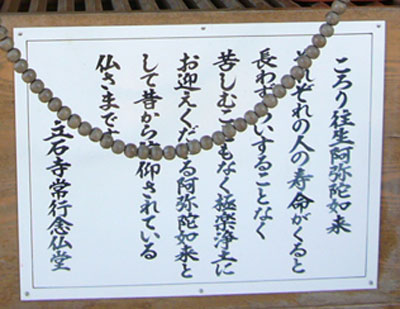 ころり往生阿弥陀如来
それぞれの人の寿命がくると
長わずらいすることなく
苦しむこともなく極楽浄土に
お迎えくださる阿弥陀如来と
して昔から信仰されている
仏さまです
立石寺常行念仏堂